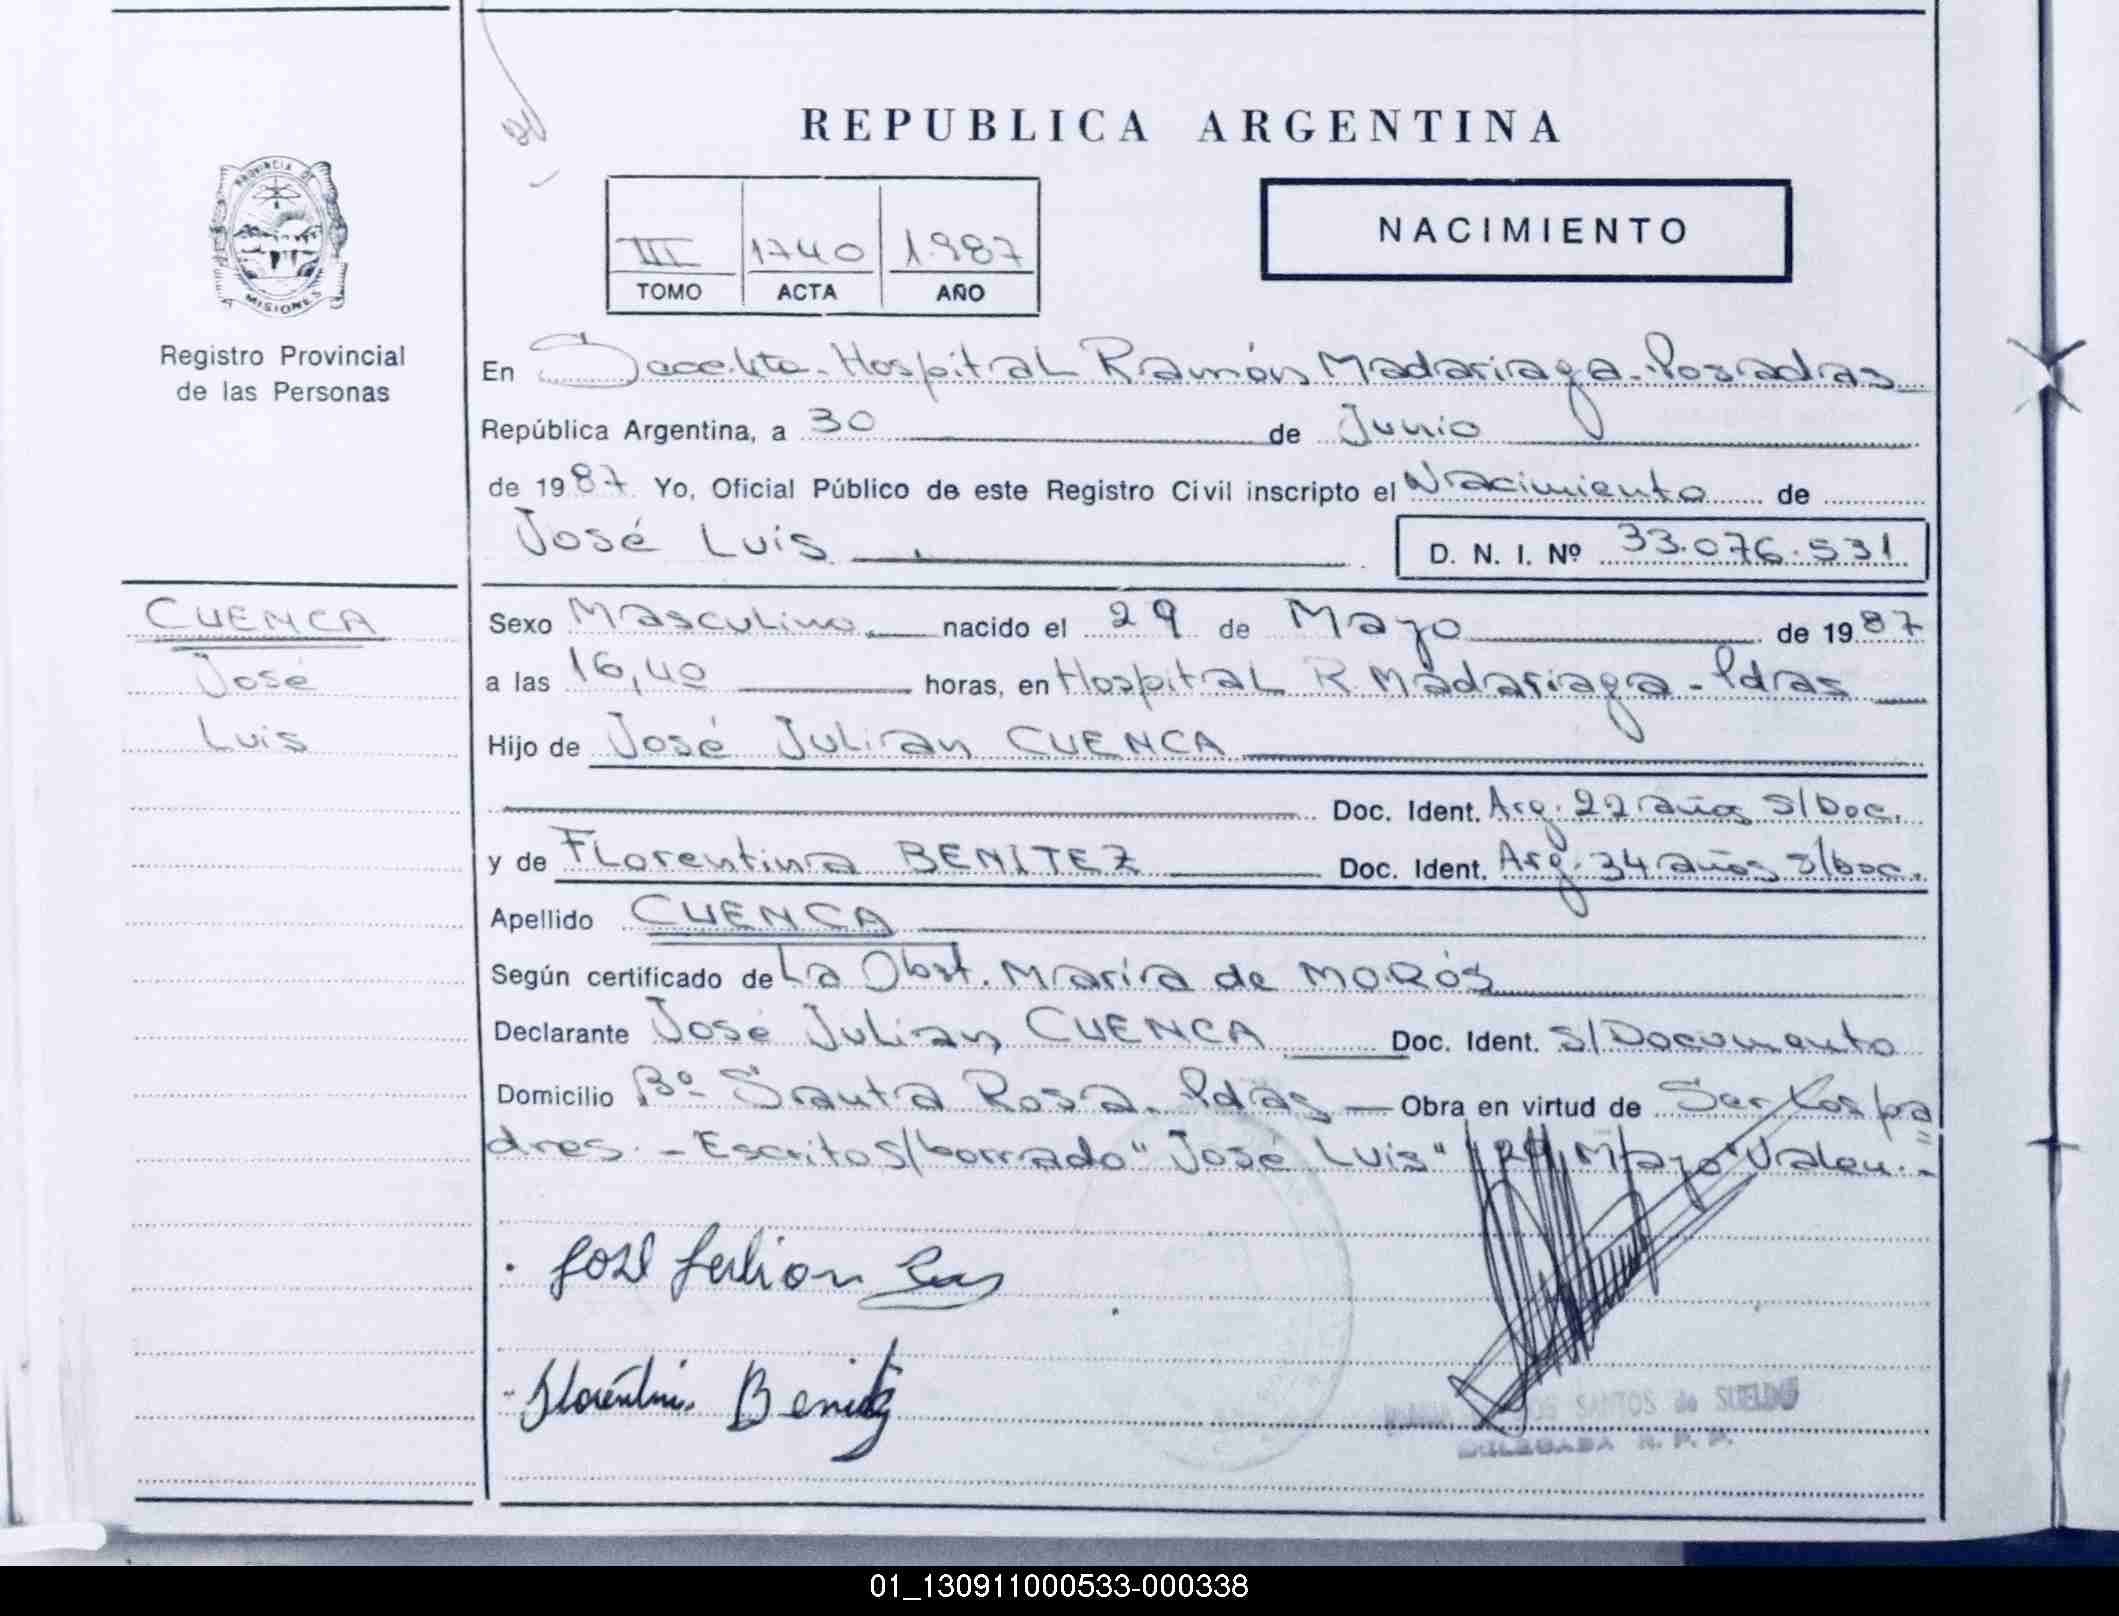 REPUBLICA ARGENTINA
PROVINCIA DE
MISIONES
Registro Provincial
de las Personas
III 1740 1.987
TOMO ACTA AÑO
NACIMIENTO
En Hospital Ramón Madariaga. Posadas
República Argentina, a 30 de Junio
de 1987. Yo, Oficial Público de este Registro Civil inscripto el Nacimiento de
José Luis D. N. I. Nº 33.076.531
CUENCA
José
Luis
Sexo Masculino nacido el 29 de Mayo de 1987
a las 16,40 horas, en Hospital R. Madariaga - Pdas
Hijo de José Julian CUENCA
Doc. Ident. Arg. 22 años s/Doc.
y de Florentina BENITEZ Doc. Ident. Arg. 34 años s/Doc.
Apellido CUENCA
Según certificado de La Obst. María de MORÓS
Declarante José Julian CUENCA Doc. Ident. s/Documento
Domicilio Bº Santa Rosa. Pdas Obra en virtud de Ser los pa
dres. - Escritos/borrado "José Luis" "29 Mayo" Valen.-
José Julian
Florentina Benitez
SANTOS de SUELDO
DELEGADA R. P. P.
01_130911000533-000338